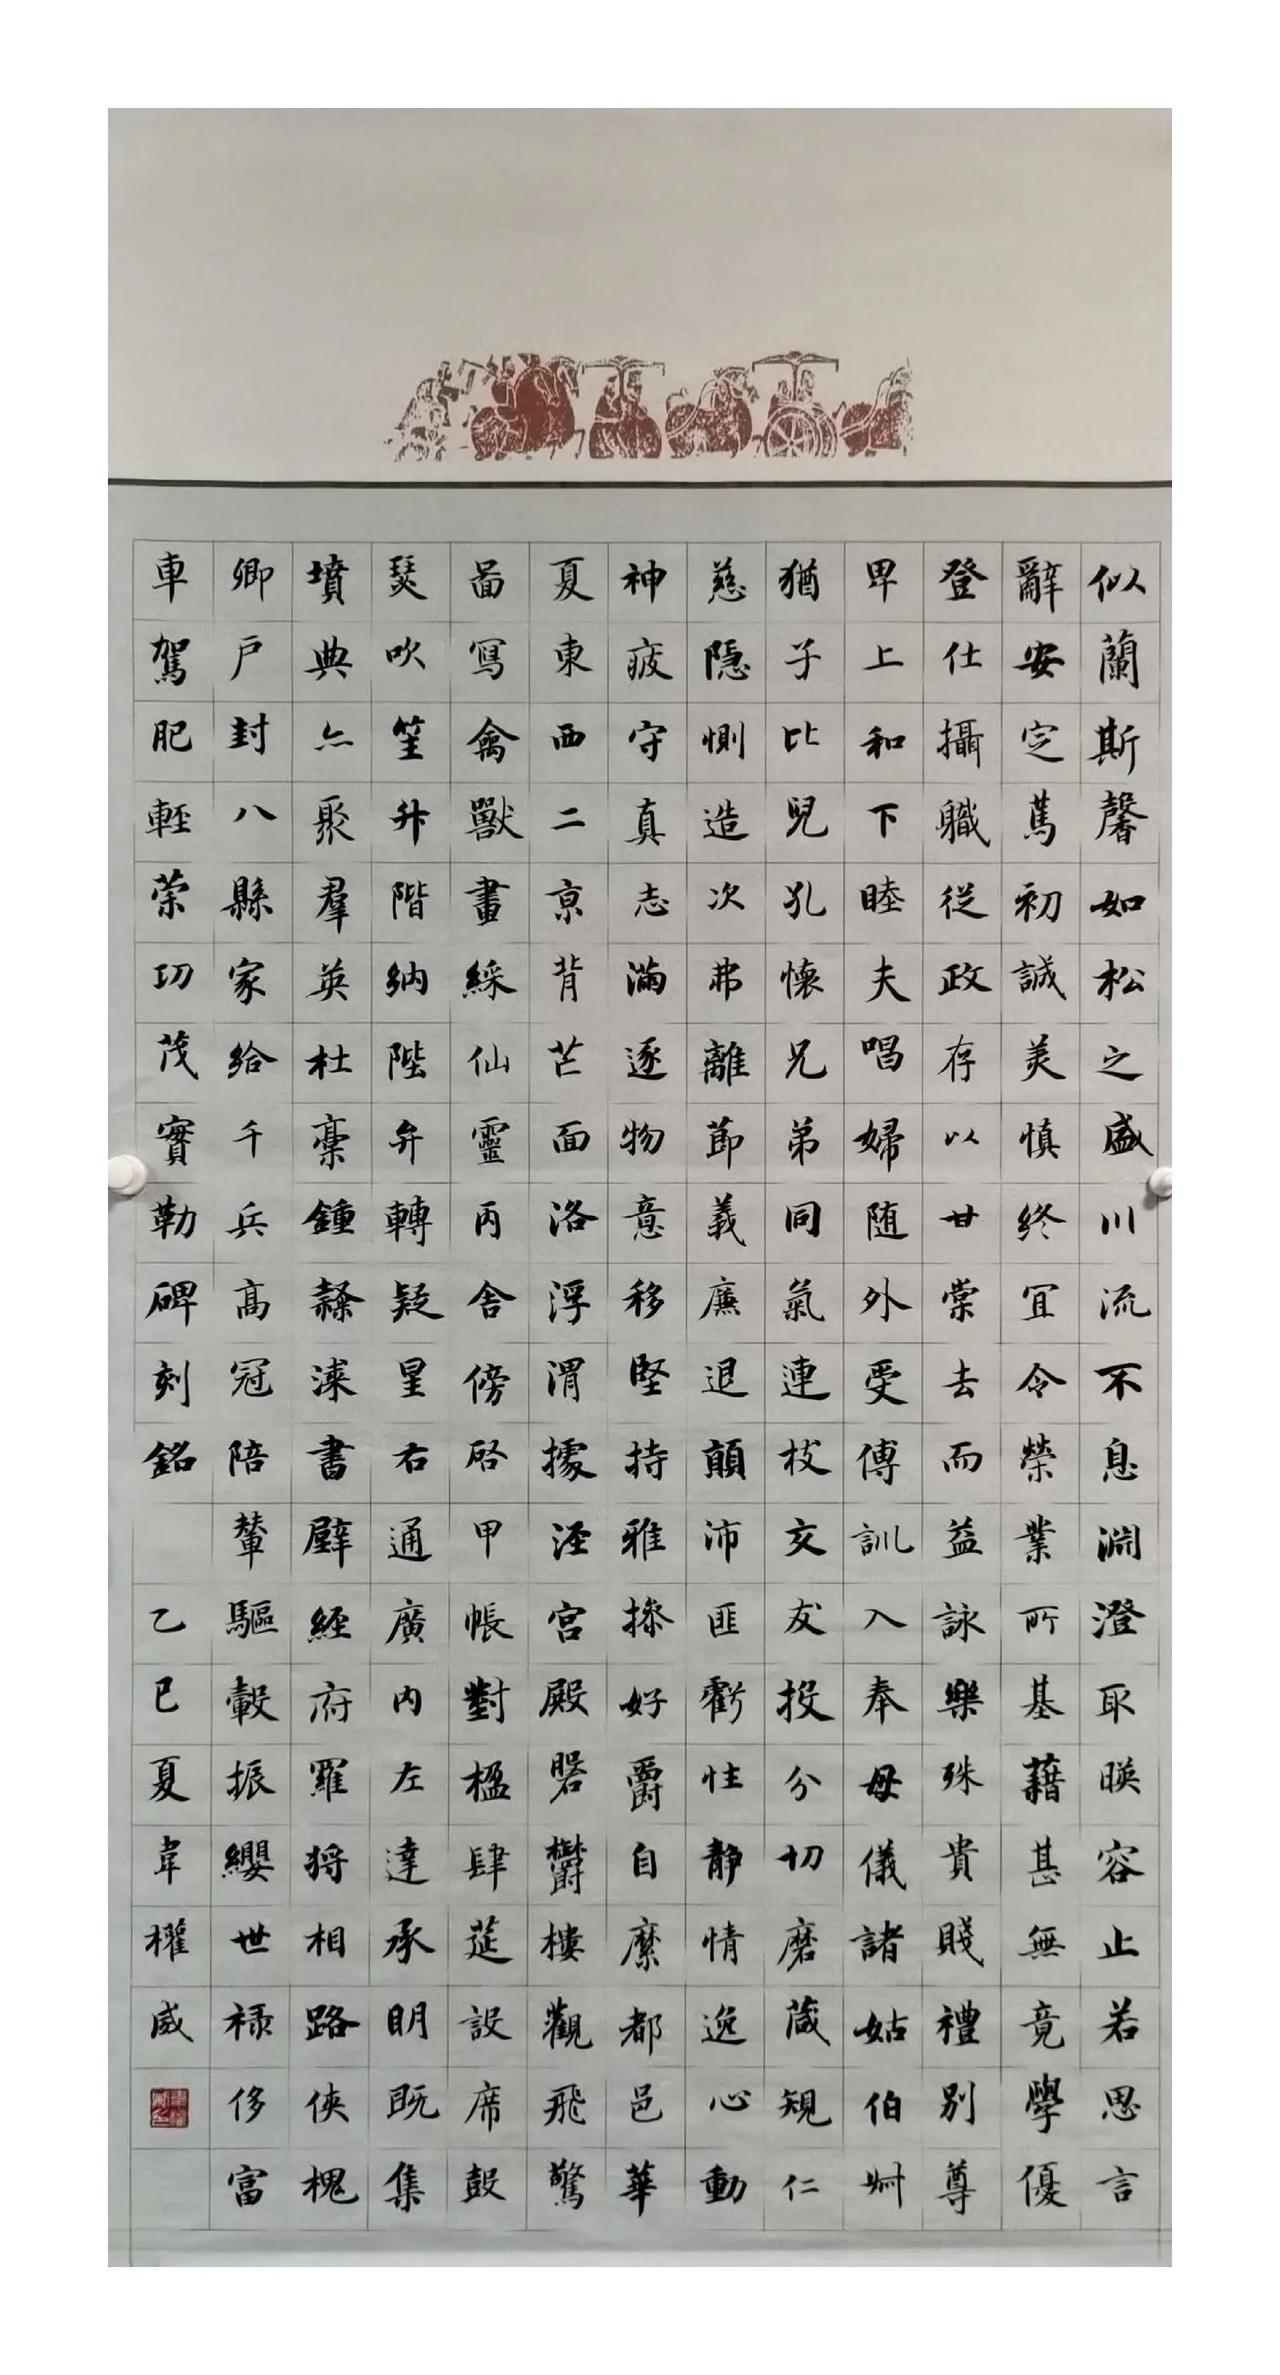 似蘭斯馨如松之盛川流不息淵澄取暎容止若思言
辭安定篤初誠美慎終宜令榮業所基藉甚無竟學優
登仕攝職從政存以甘棠去而益詠樂殊貴賤禮別尊
卑上和下睦夫唱婦随外受傅訓入奉母儀諸姑伯叔
猶子比兒孔懷兄弟同氣連枝交友投分切磨箴規仁
慈隱惻造次弗離節義廉退顛沛匪虧性静情逸心動
神疲守真志滿逐物意移堅持雅操好爵自縻都邑華
夏東西二京背芒面洛浮渭據涇宮殿磐鬱樓觀飛驚
啚寫禽獸畫綵仙靈丙舍傍啓甲帳對楹肆筵設席鼓
瑟吹笙升階納陛弁轉疑星右通廣內左達承明既集
墳典亦聚羣英杜稾鍾隸漆書壁經府羅將相路俠槐
卿戶封八縣家給千兵高冠陪輦驅轂振纓世祿侈富
車駕肥輕策功茂實勒碑刻銘 乙巳夏韋權威